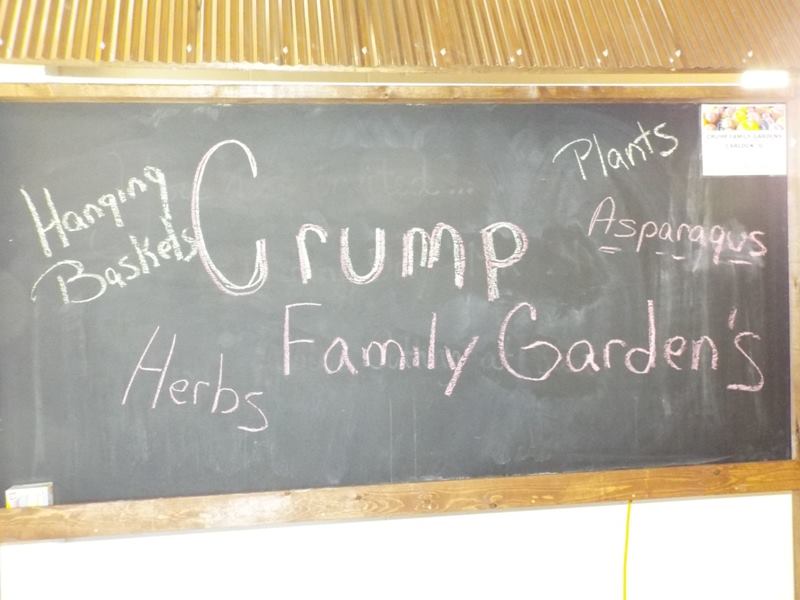 Hanging
Baskets
Crump
Family Garden's
Herbs
Plants
Asparagus
CRUMP FAMILY GARDENS